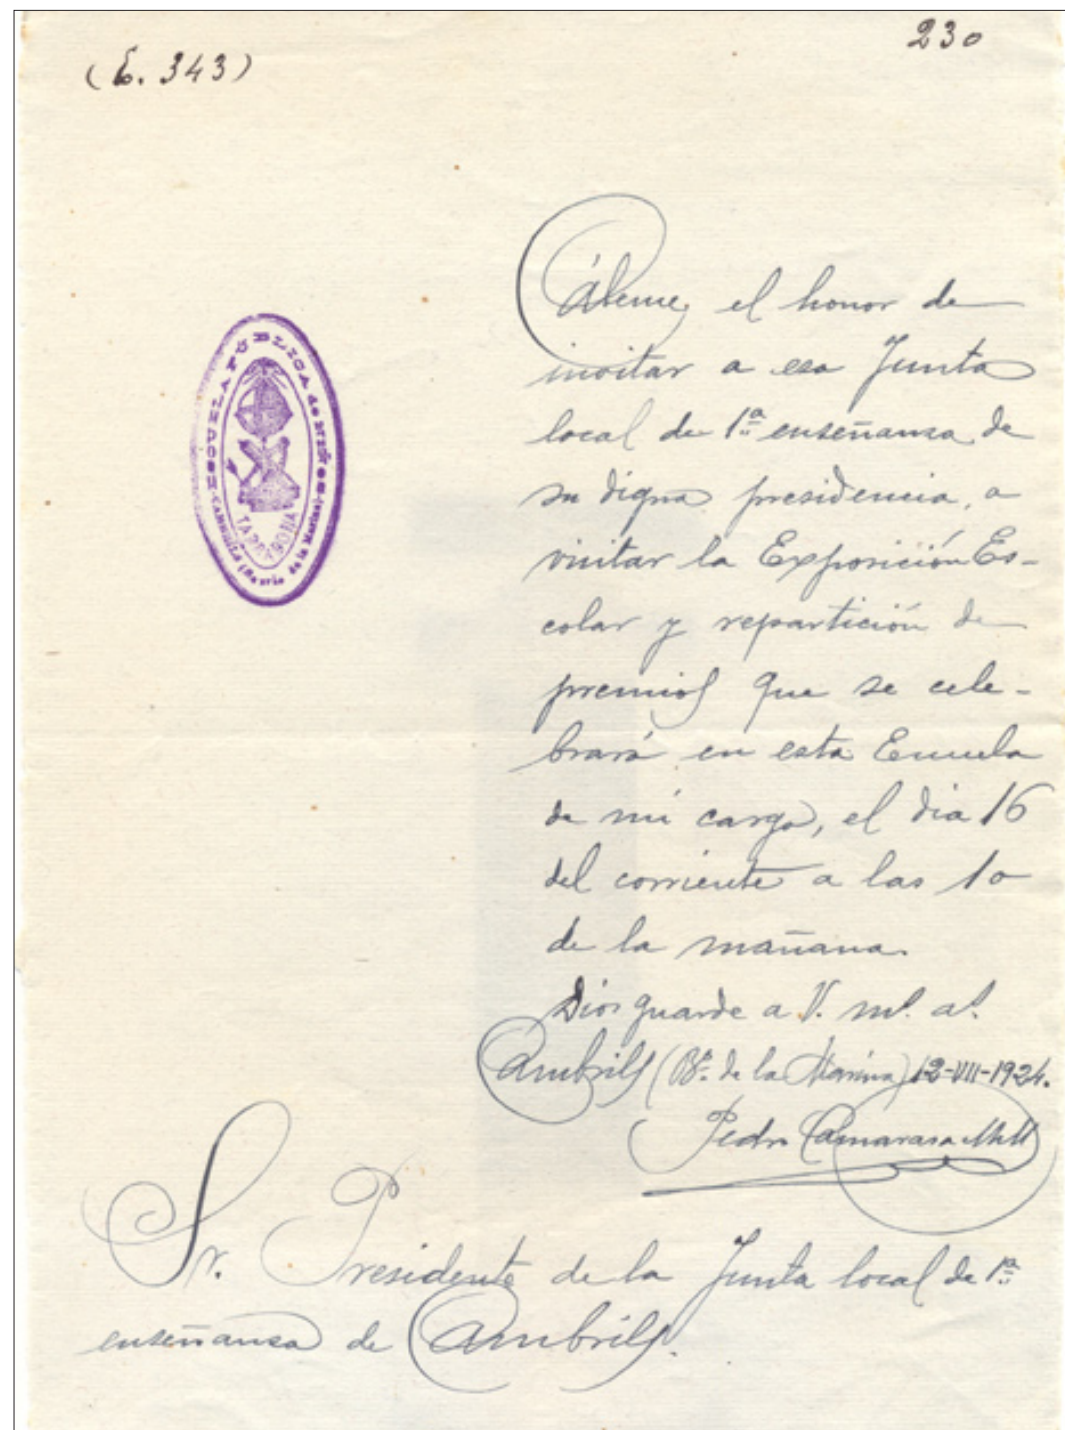 230
(E. 343)
ESCUELA PÚBLICA de NIÑOS
CAMBRILS (Barrio de la Marina)
TARRAGONA
Cábeme el honor de
invitar a esa Junta
local de 1ª enseñanza de
su digna presidencia, a
visitar la Exposición Es-
colar y repartición de
premios que se cele-
brará en esta Escuela
de mi cargo, el dia 16
del corriente a las 10
de la mañana.
Dios guarde a V. ms. as.
Cambrils (Bº. de la Marina) 12-VIII-1924.
Pedro Camarasa
Sr. Presidente de la Junta local de 1ª
enseñanza de Cambrils.